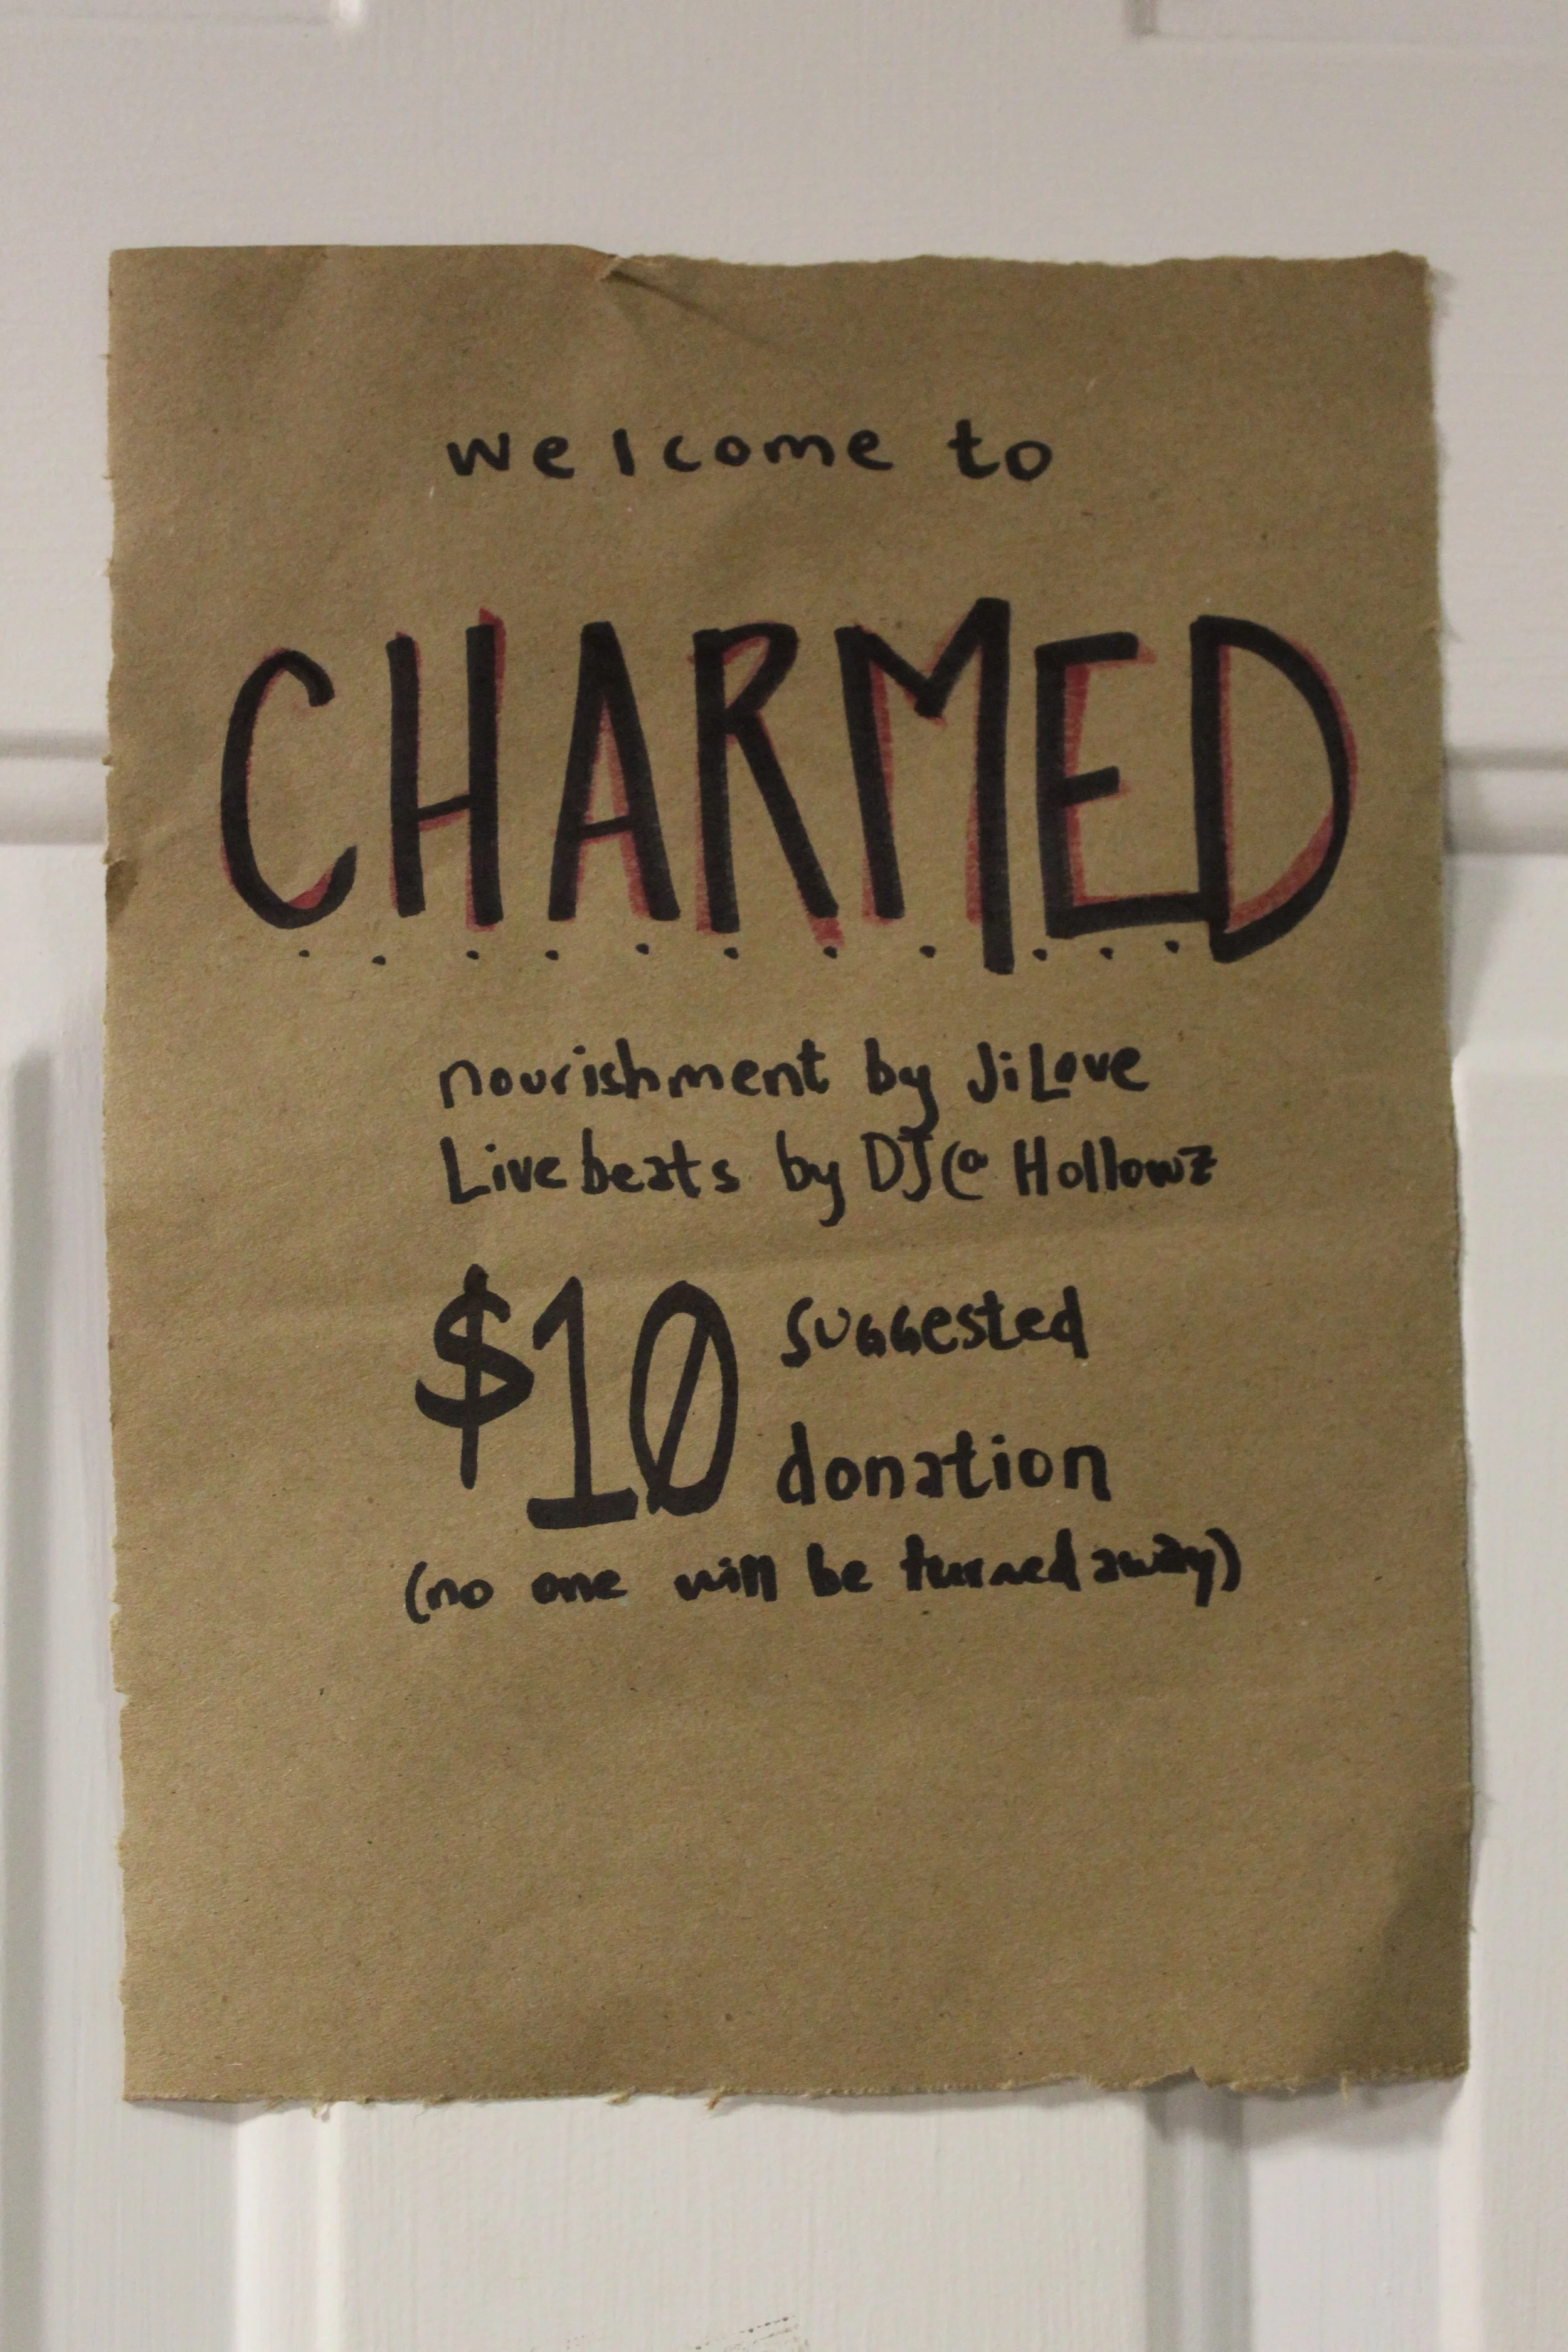 welcome to
CHARMED
nourishment by JiLove
Live beats by DJ@ Hollowz
$10 suggested
donation
(no one will be turned away)